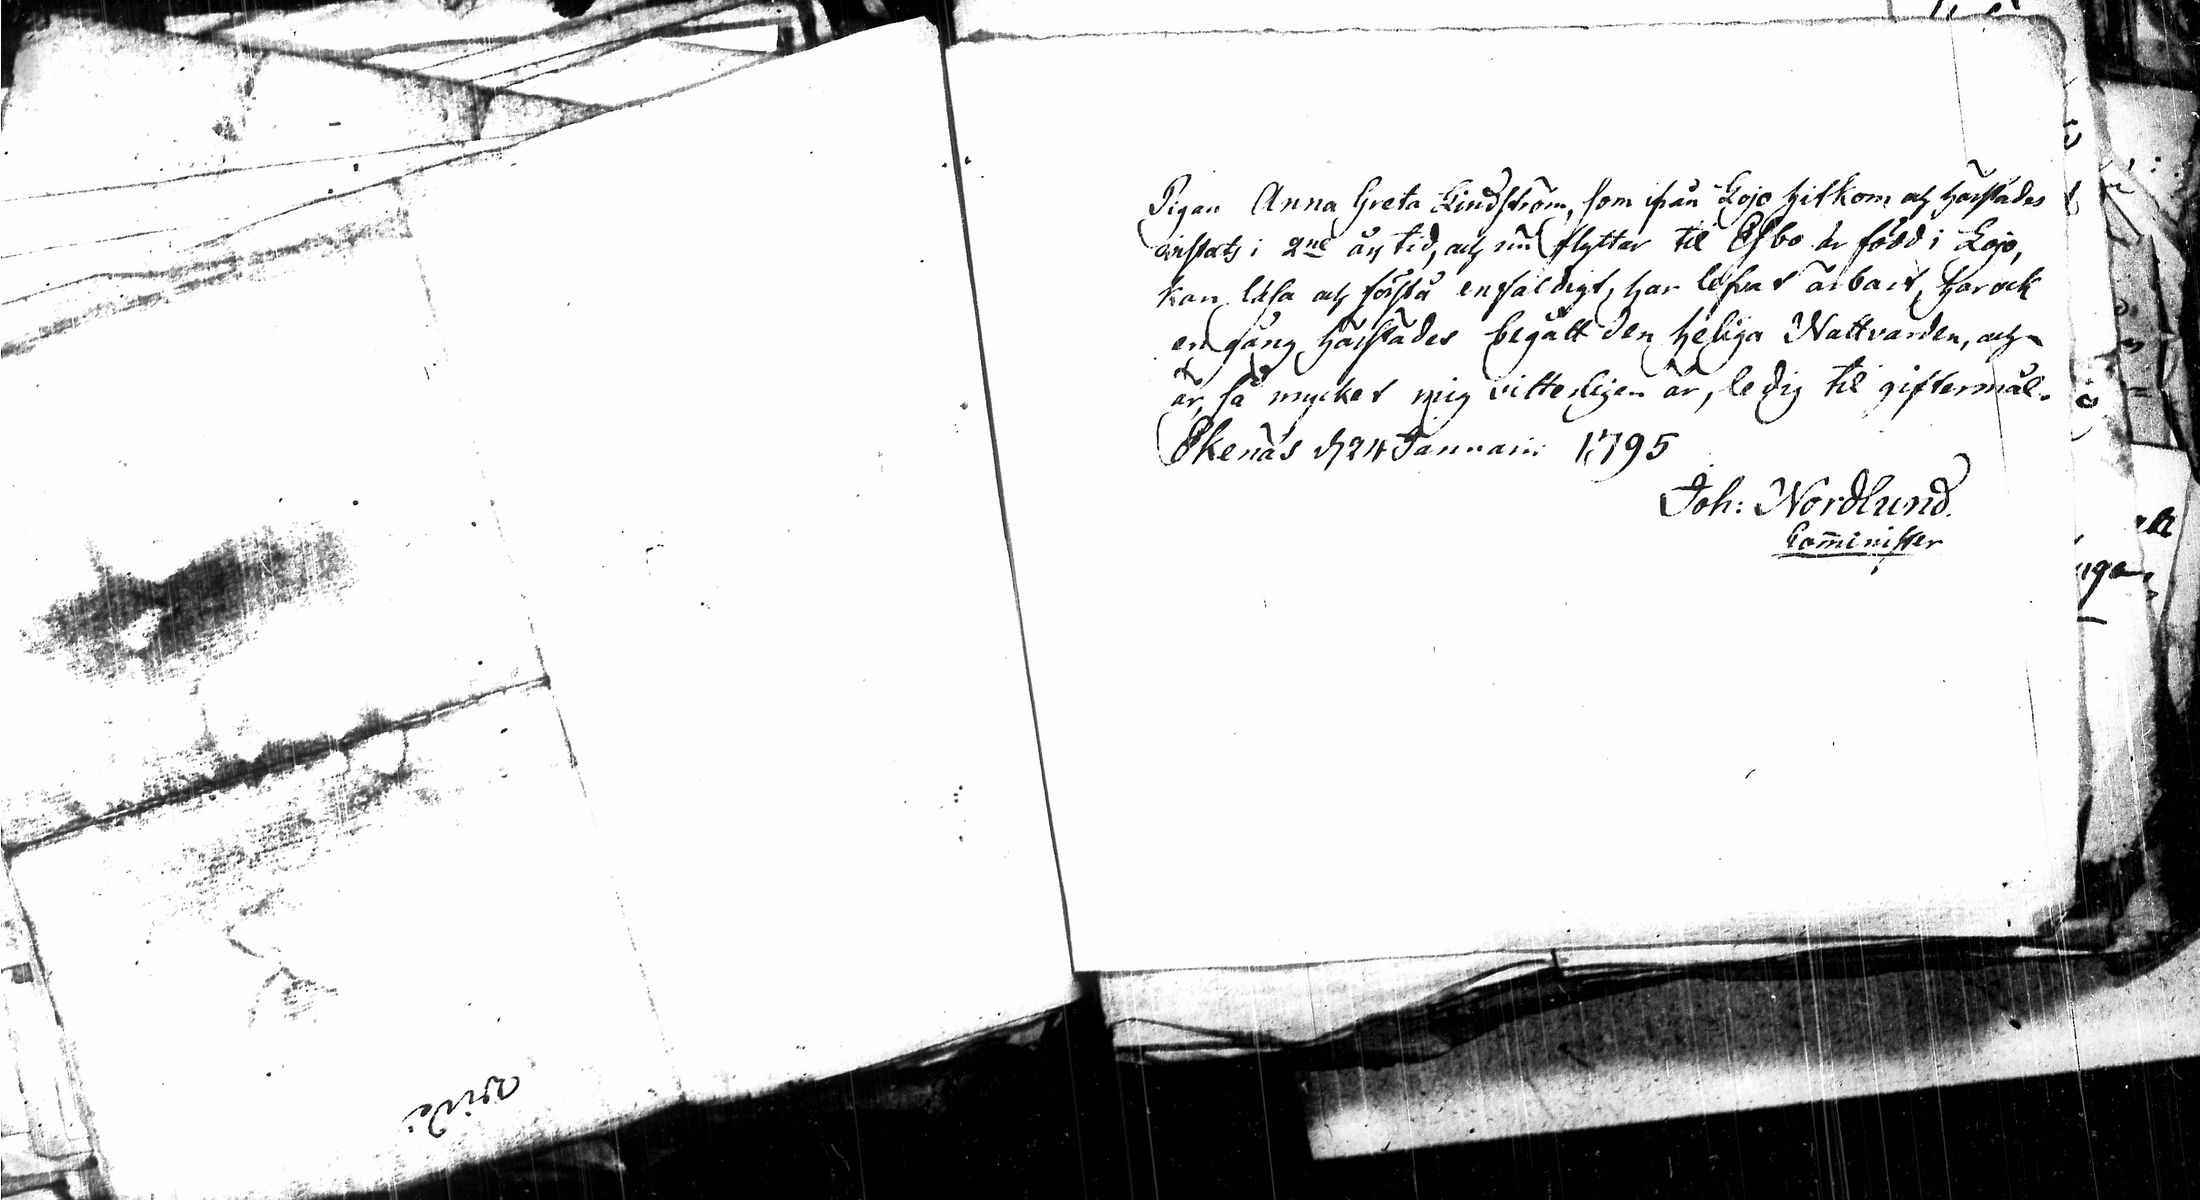 Pigan Anna Greta Lindström, som ifrån Lojo hitkom och härstädes
vistats i 2ne års tid, och nu flyttar til Esbo är född i Lojo,
kan läsa och förstå enfaldigt, har lefvat ärbart, har ock
en gång härstädes begått den heliga Nattvarden, och
är, så mycket mig vitterligen är, ledig til giftermål.
Ekenäs d 24 Januarii 1795
Joh: Nordlund.
Com̄inister